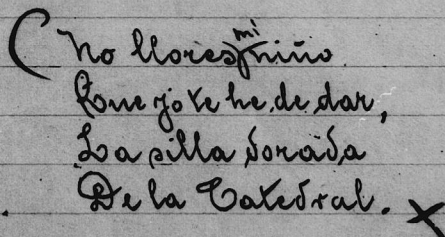 (No llores mi niño
Que yo te he de dar,
La silla dorada
De la Catedral. X